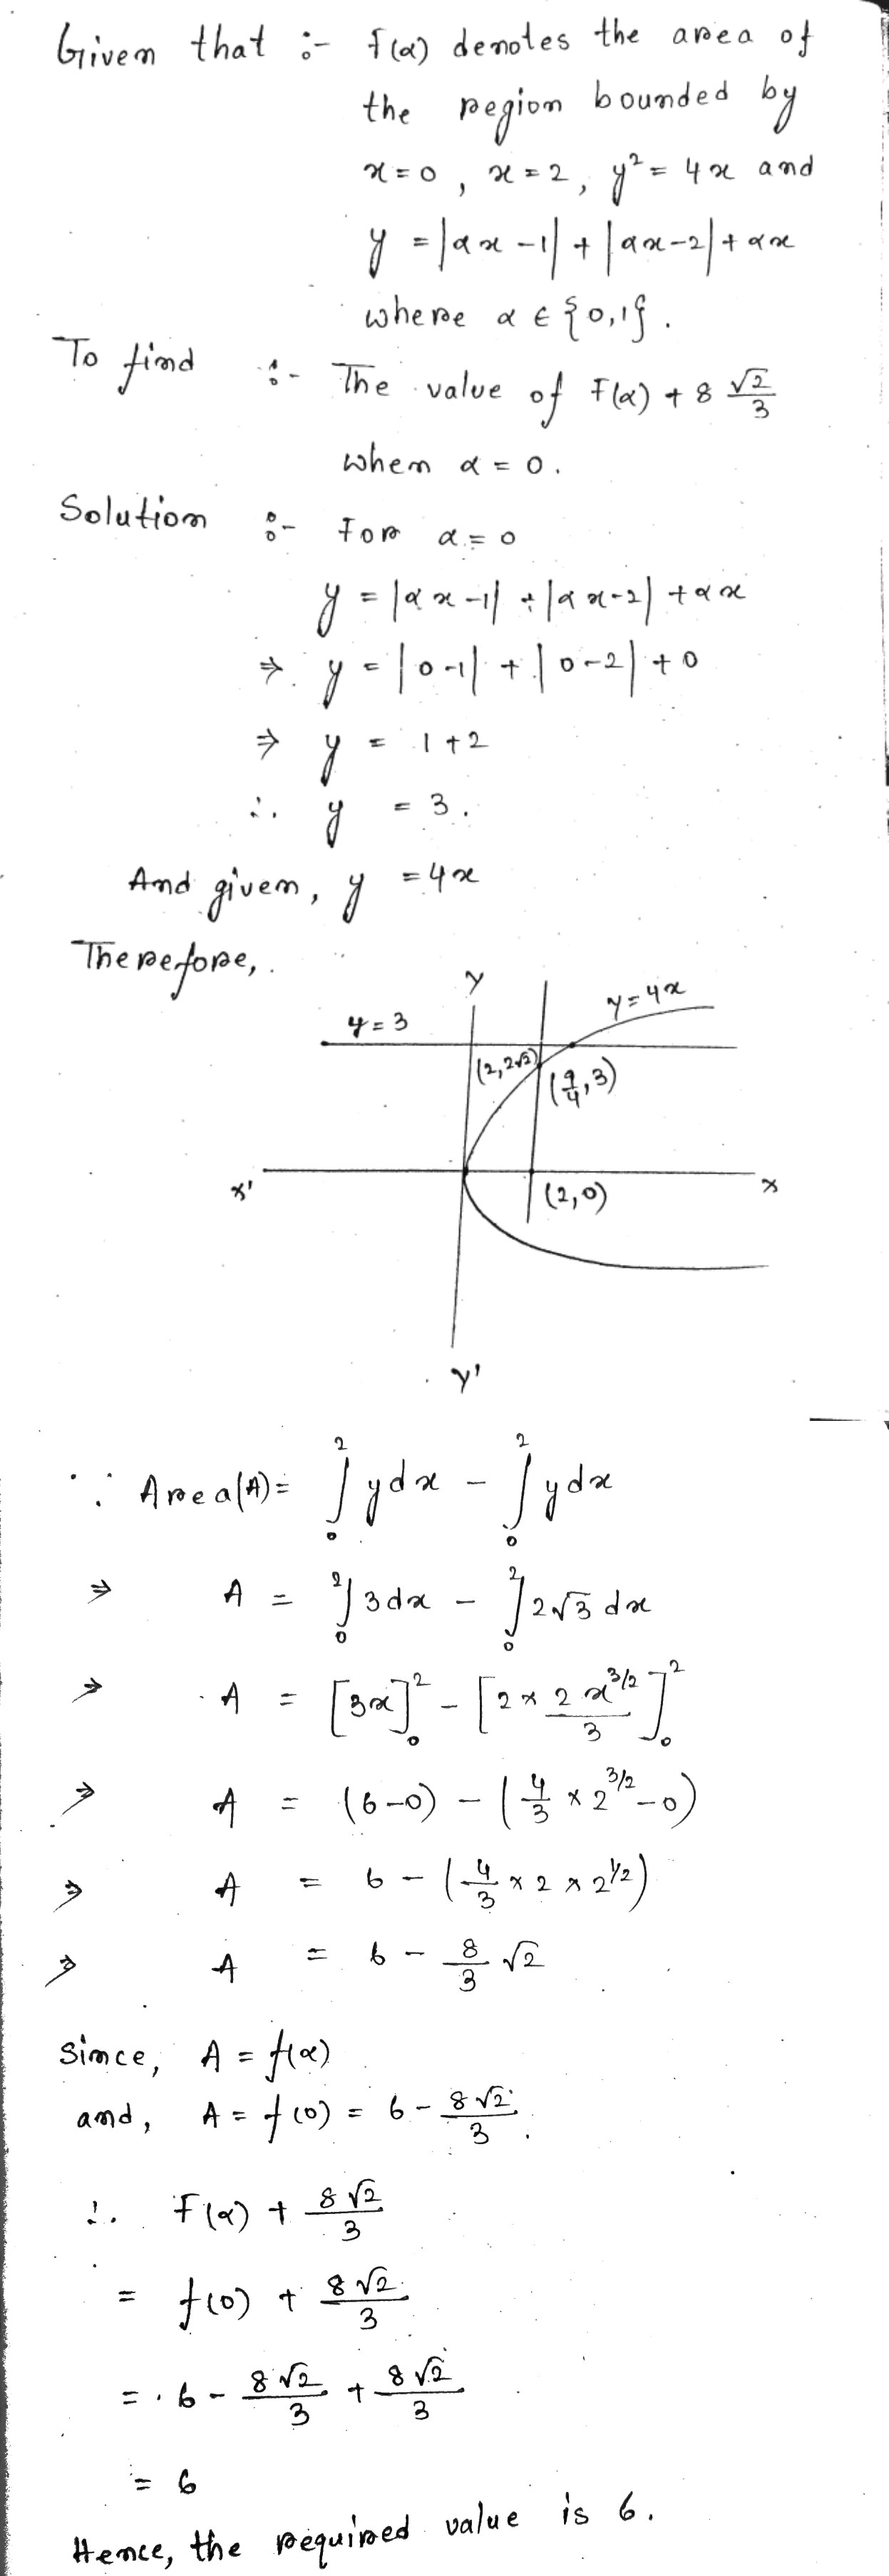 Given that :- f(α) denotes the area of
the region bounded by
x=0, x=2, y²=4x and
y = |αx-1| + |αx-2| + αx
where α ∈ {0,1}.
To find :- The value of F(α) + 8 √2/3
when α = 0.
Solution :- For α = 0
y = |αx-1| + |αx-2| + αx
⇒ y = |0-1| + |0-2| + 0
⇒ y = 1+2
∴ y = 3.
And given, y = 4x
Therefore,
Y
y=4x
y=3
(2,2√2)
(9/4,3)
x'
(2,0)
x
Y'
∵ Area(A) = ∫₀² ydx - ∫₀² ydx
⇒ A = ∫₀² 3dx - ∫₀² 2√3 dx
⇒ A = [3x]₀² - [2×2x^(3/2)/3]₀²
⇒ A = (6-0) - (4/3 × 2^(3/2) -0)
⇒ A = 6 - (4/3 × 2 × 2^(1/2))
⇒ A = 6 - 8/3 √2
Since, A = f(α)
and, A = f(0) = 6 - 8√2/3.
∴ F(α) + 8√2/3
= f(0) + 8√2/3
= 6 - 8√2/3 + 8√2/3
= 6
Hence, the required value is 6.